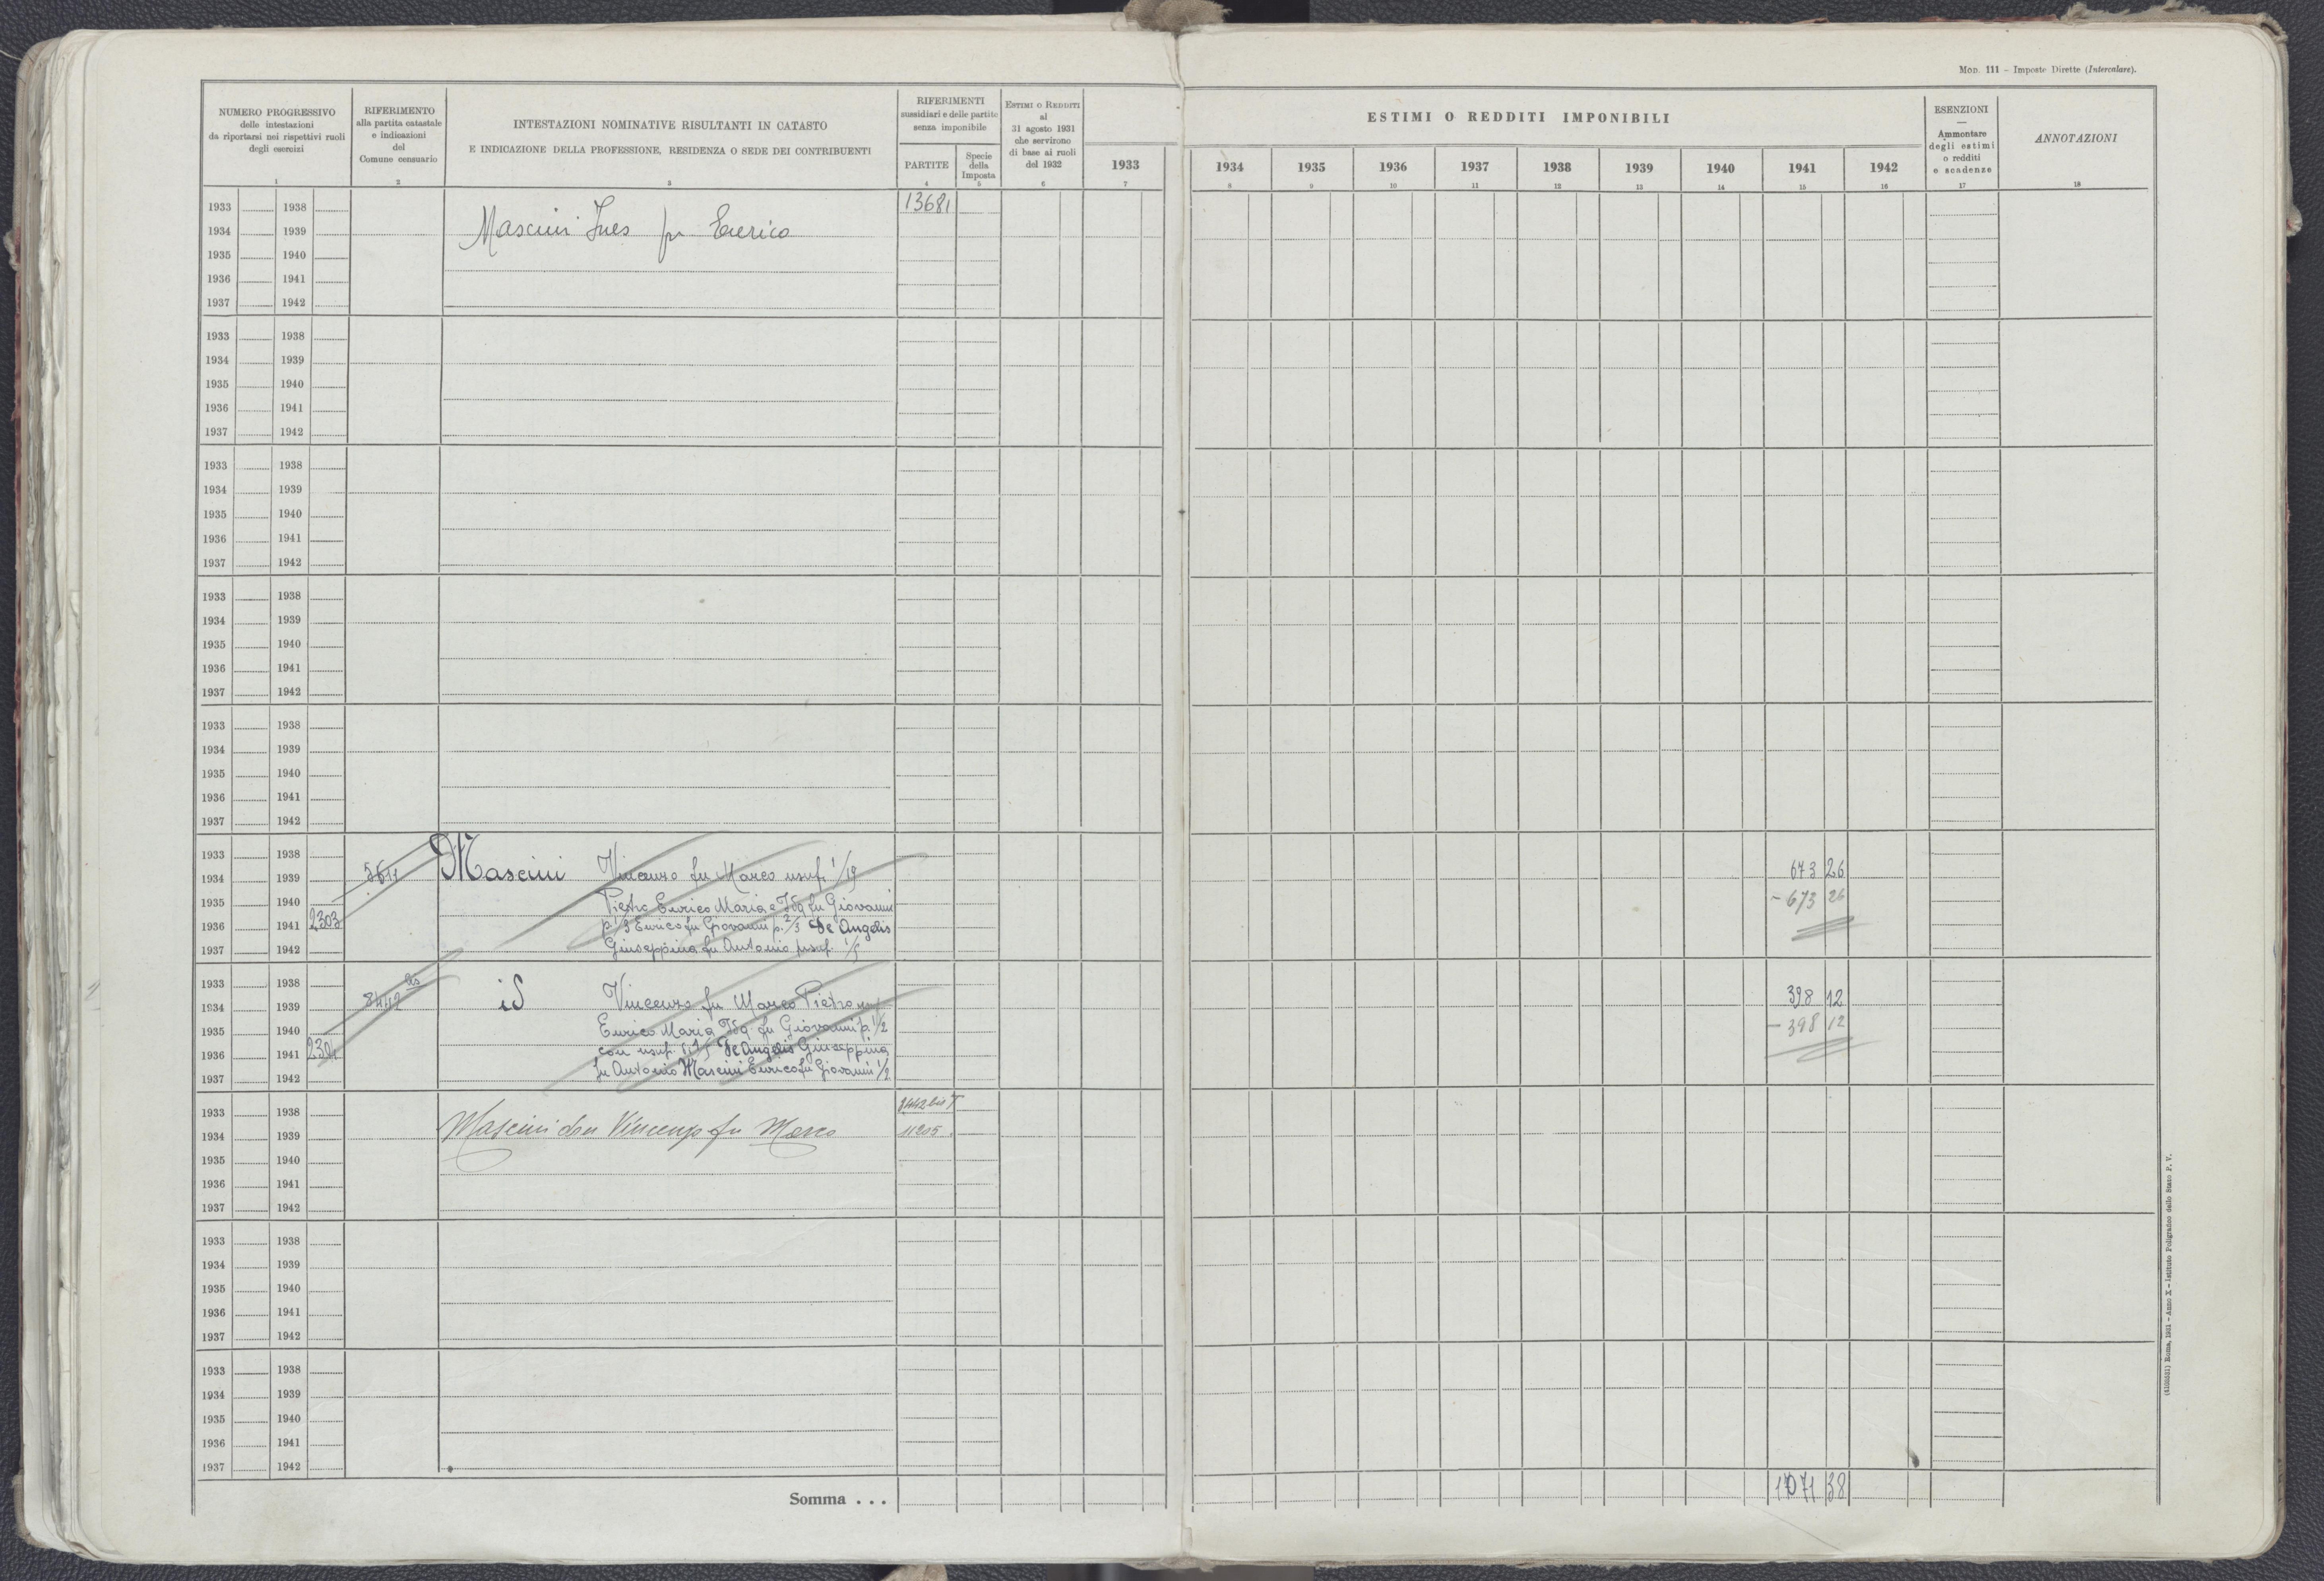 Mod. 111 – Imposte Dirette (Intercalare).
NUMERO PROGRESSIVO
delle intestazioni
da riportarsi nei rispettivi ruoli
degli esercizi
1
RIFERIMENTO
alla partita catastale
e indicazioni
del
Comune censuario
2
INTESTAZIONI NOMINATIVE RISULTANTI IN CATASTO
E INDICAZIONE DELLA PROFESSIONE, RESIDENZA O SEDE DEI CONTRIBUENTI
3
RIFERIMENTI
sussidiari e delle partite
senza imponibile
PARTITE
4
Specie
della
Imposta
5
Estimi o Redditi
al
31 agosto 1931
che servirono
di base ai ruoli
del 1932
6
1933
7
ESTIMI O REDDITI IMPONIBILI
1934 1935 1936 1937 1938 1939 1940 1941 1942
8 9 10 11 12 13 14 15 16
ESENZIONI
—
Ammontare
degli estimi
o redditi
e scadenze
17
ANNOTAZIONI
18
1933 1938 13681
1934 1939 Mascini Ines fu Enrico
1935 1940
1936 1941
1937 1942
1933 1938
1934 1939
1935 1940
1936 1941
1937 1942
1933 1938
1934 1939
1935 1940
1936 1941
1937 1942
1933 1938
1934 1939
1935 1940
1936 1941
1937 1942
1933 1938
1934 1939
1935 1940
1936 1941
1937 1942
1933 1938
1934 1939 Mascini Vincenzo fu Marco usuf. 673 26
1935 1940 Pietro Enrico Maria e Ida fu Giovanni - 673 26
1936 1941 2303 Enrico fu Giovanni p. 2/3 De Angelis
1937 1942 Giuseppina fu Antonio usuf.
1933 1938
1934 1939 8442 bis id Vincenzo fu Marco Pietro 398 12
1935 1940 Enrico Maria Ida fu Giovanni p. 1/2 - 398 12
1936 1941 2304 con usuf. De Angelis Giuseppina
1937 1942 fu Antonio Mascini Enrico fu Giovanni 1/2
1933 1938 8442 bis
1934 1939 Mascini don Vincenzo fu Marco 11205
1935 1940
1936 1941
1937 1942
1933 1938
1934 1939
1935 1940
1936 1941
1937 1942
1933 1938
1934 1939
1935 1940
1936 1941
1937 1942
Somma . . . 1071 38
Roma, 1931 – Anno X – Istituto Poligrafico dello Stato P. V.